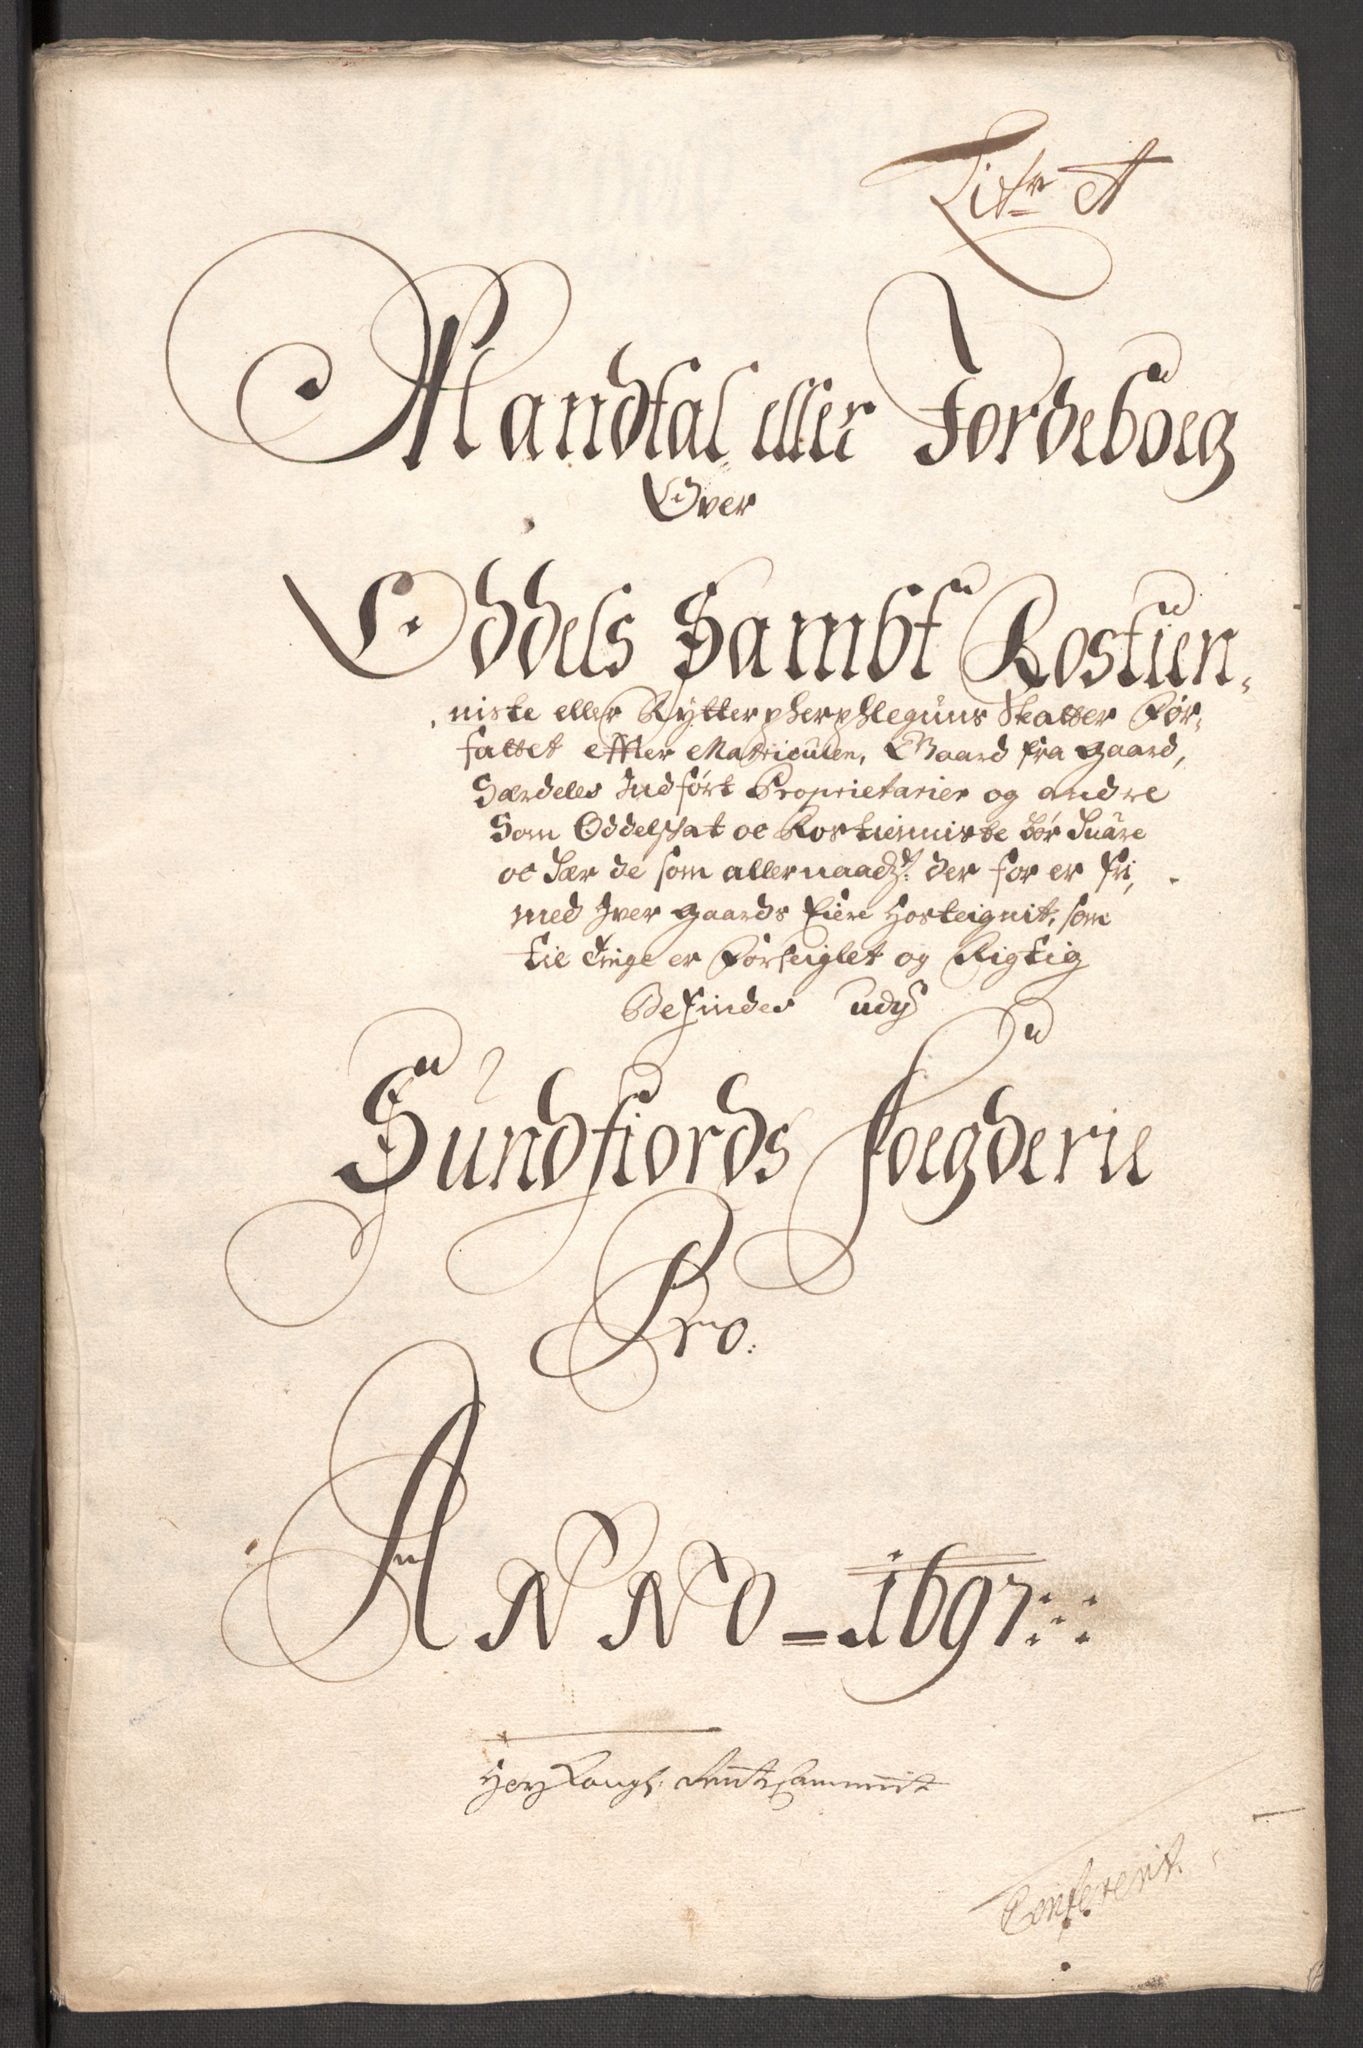 Litr A
Mandtal eller Jordeboeg
Over
Oddels Sambt Rostien-
niste eller Rytter pherphleguns Skatter For-
fattet effter Matriculen, Gaard fra gaard,
Særdeles Indført Proprietarier og andre
Som Oddelskat oc Rostienniste bør Suare
oc Iær de som allernaadst. der for er fri,
med hver gaards Eiere, som
til Tinge er Forseiglet og Rigtig
Befindes udj
Sundfiords Foegderie
Pro.
ANNO = 1697
Kongl. Rentekammerit
Confererit.